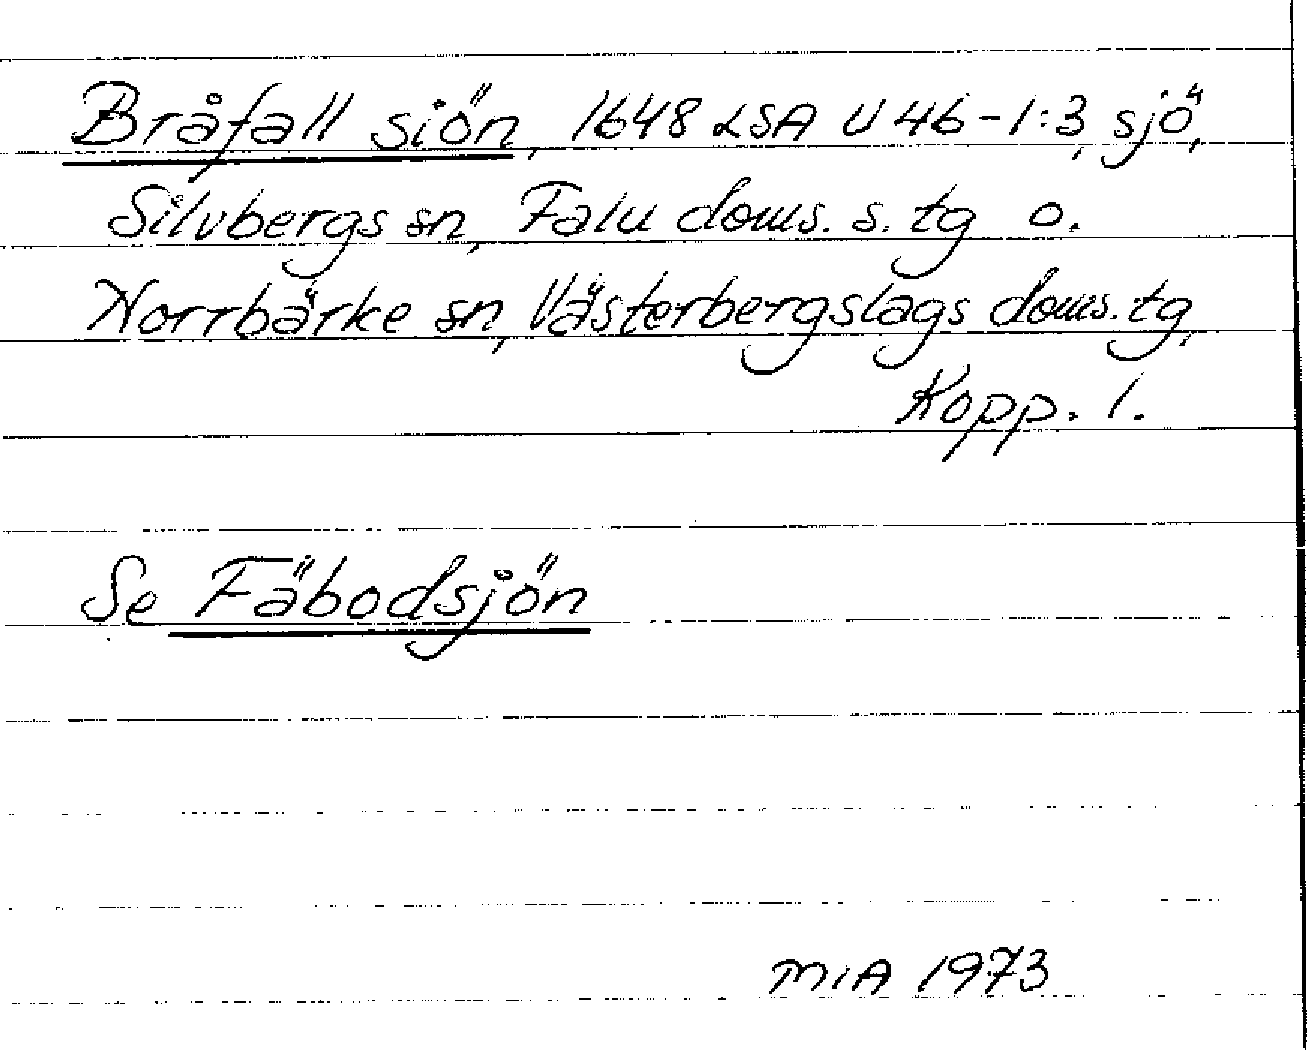 Bråfall siön, 1648 LSA U 46-1:3, sjö,
Silvbergs sn, Falu doms. s. tg o.
Norrbärke sn, Västerbergslags doms. tg,
Kopp. l.
Se Fäbodsjön
MiA 1973